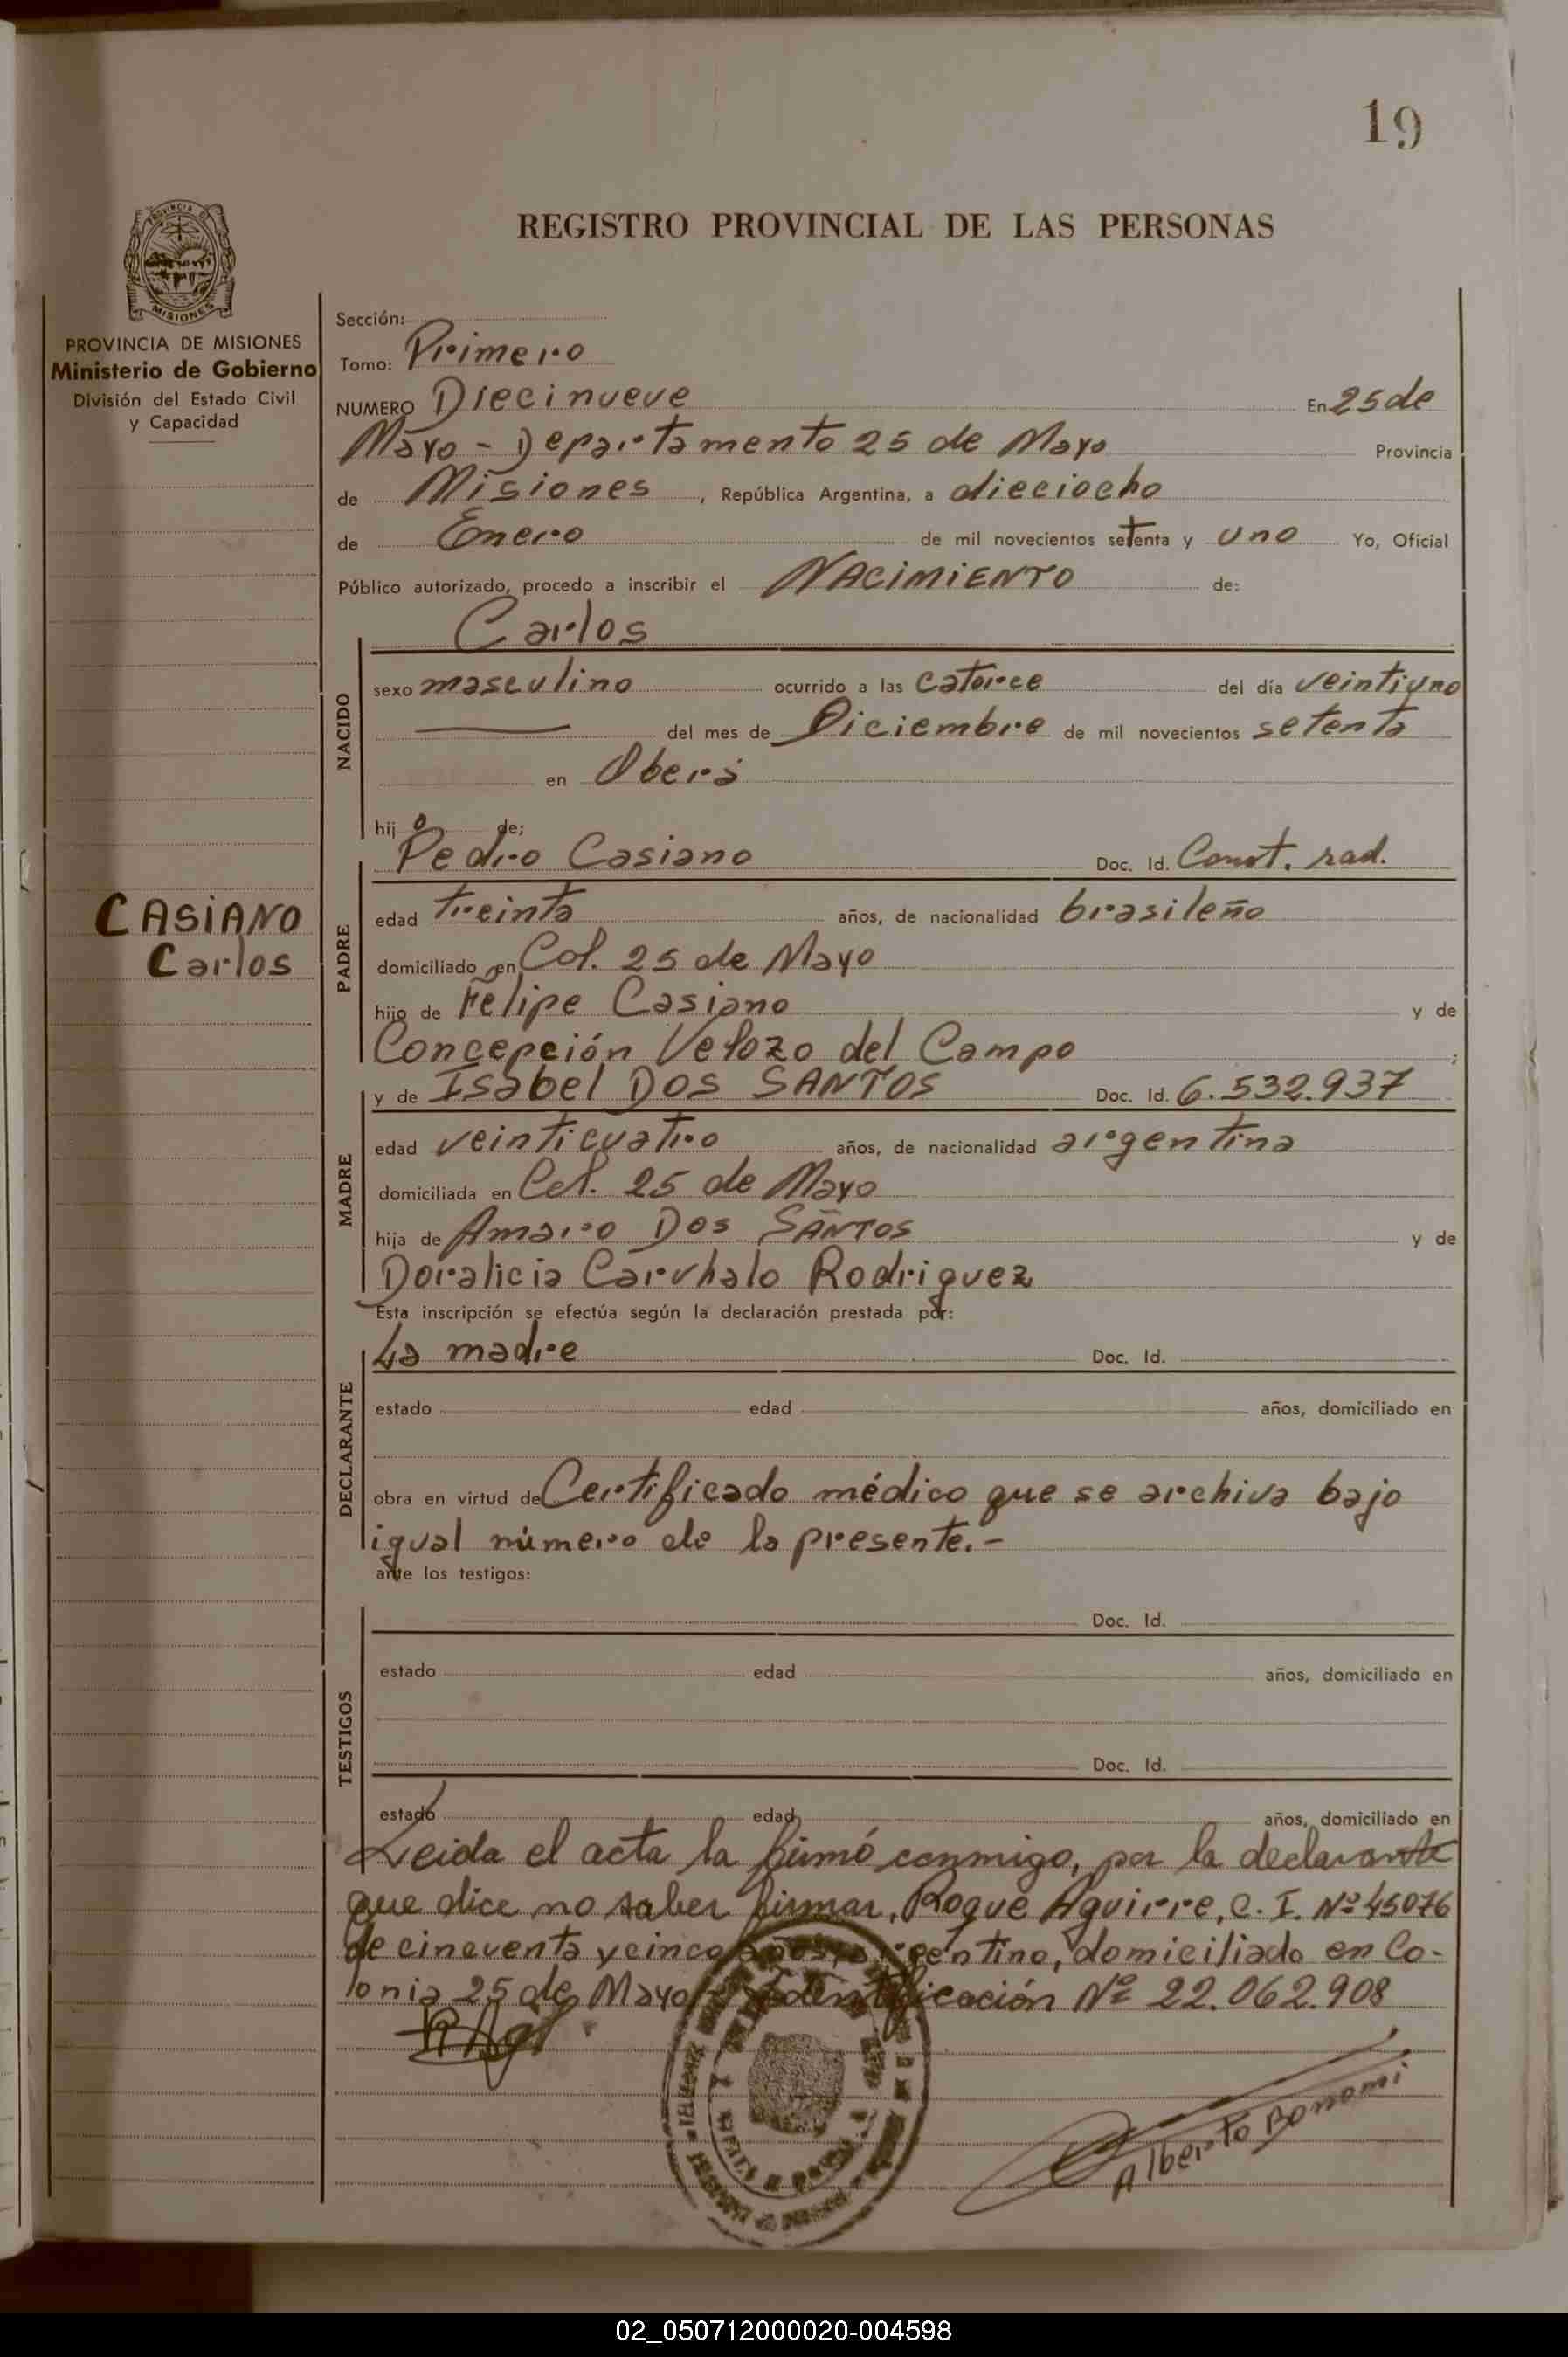 19
REGISTRO PROVINCIAL DE LAS PERSONAS
MISIONES
PROVINCIA DE MISIONES
Ministerio de Gobierno
División del Estado Civil
y Capacidad
Sección:
Tomo: Primero
NUMERO Diecinueve En 25 de
Mayo - Departamento 25 de Mayo Provincia
de Misiones, República Argentina, a dieciocho
de Enero de mil novecientos setenta y uno Yo, Oficial
Público autorizado, procedo a inscribir el NACIMIENTO de:
Carlos
NACIDO
sexo masculino ocurrido a las catorce del día veintiuno
del mes de Diciembre de mil novecientos setenta
en Oberá
hij o de;
Pedro Casiano Doc. Id. Const. rad.
CASIANO
Carlos
PADRE
edad treinta años, de nacionalidad brasileño
domiciliado en Col. 25 de Mayo
hijo de Felipe Casiano y de
Concepción Velozo del Campo ;
y de Isabel DOS SANTOS Doc. Id. 6.532.937
MADRE
edad veinticuatro años, de nacionalidad argentina
domiciliada en Col. 25 de Mayo
hija de Amaro Dos SANTOS y de
Doralicia Carvhalo Rodriguez
Esta inscripción se efectúa según la declaración prestada por:
La madre Doc. Id.
DECLARANTE
estado edad años, domiciliado en
obra en virtud de Certificado médico que se archiva bajo
igual número de la presente.-
ante los testigos:
Doc. Id.
TESTIGOS
estado edad años, domiciliado en
Doc. Id.
estado edad años, domiciliado en
Leida el acta la firmó conmigo, por la declarante
que dice no saber firmar, Roque Aguirre, C. I. Nº 45076
de cincuenta y cinco años, argentino, domiciliado en Co-
lonia 25 de Mayo - Identificación Nº 22.062.908
Alberto Bonomi
02_050712000020-004598